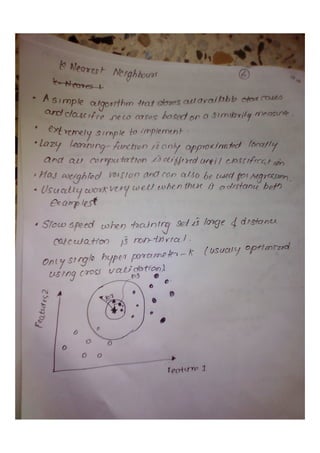 K Nearest Neighbour
K-Neares t
• A simple algorithm that stores all available cases
and classifie new cases based on a similarity measure.
• extremely simple to implement
• Lazy Learning - function is only approximated locally
and all computation is differed until classification
• Has weighted version and can also be used for regression.
• Usually work very well when there is a distance both
Examples
• Slow speed when training set is large & distance
calculation is non-trivial.
Only single hyper parameter - K (usually optimized
using cross validation)
Features 2
Feature 1